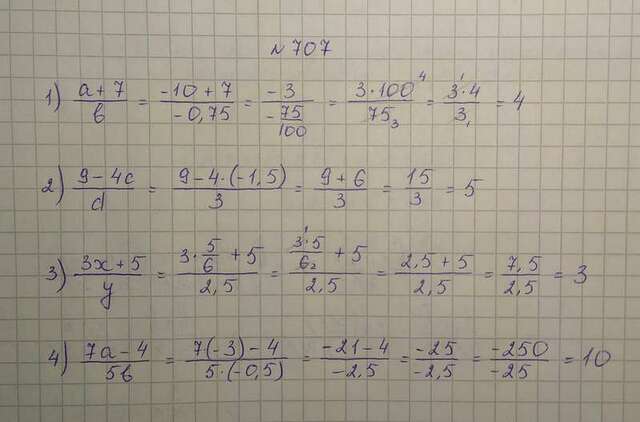 № 707
1) (a+7)/b = (-10+7)/(-0,75) = (-3)/(-75/100) = (3·100⁴)/(75₃) = (3¹·4)/(3₁) = 4
2) (9-4c)/d = (9-4·(-1,5))/3 = (9+6)/3 = 15/3 = 5
3) (3x+5)/y = (3·5/6+5)/2,5 = ((3¹·5)/(6₂)+5)/2,5 = (2,5+5)/2,5 = 7,5/2,5 = 3
4) (7a-4)/5b = (7(-3)-4)/(5·(-0,5)) = (-21-4)/(-2,5) = (-25)/(-2,5) = (-250)/(-25) = 10